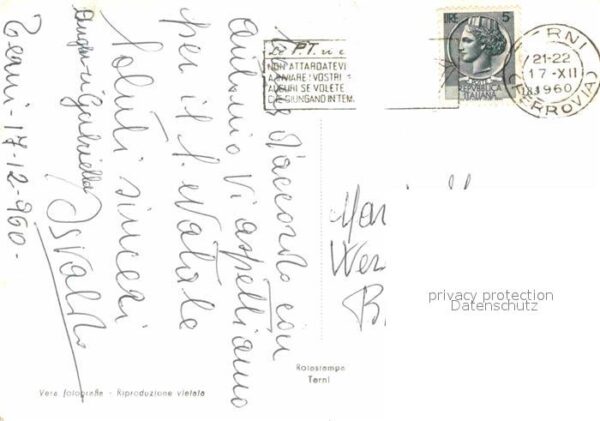 d'accordo con
Antonio vi aspettiamo
per il S. Natale
Saluti sinceri
Auguri Gabriella
Osvaldo
Terni - 17-12-960-
LIRE 5
POSTE
REPVBBLICA
ITALIANA
Le P.T.
NON ATTARDATEVI
A INVIARE I VOSTRI
AUGURI SE VOLETE
CHE GIUNGANO IN TEM
RNI
21-22
17-XII
1960
(FERROVIA)
Mar
Wer
B
privacy protection
Datenschutz
Rotostampa
Terni
Vera fotografia - Riproduzione vietata